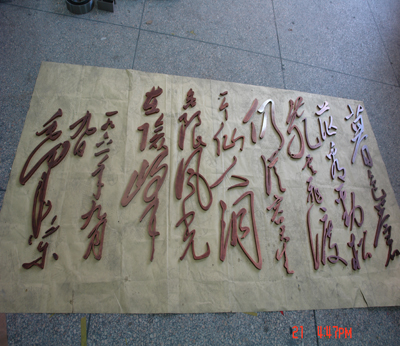 暮色苍
茫看劲松
乱云飞渡
仍从容天生
一个仙人洞
无限风光
在险峰
一九六一年九月
九日
毛泽东